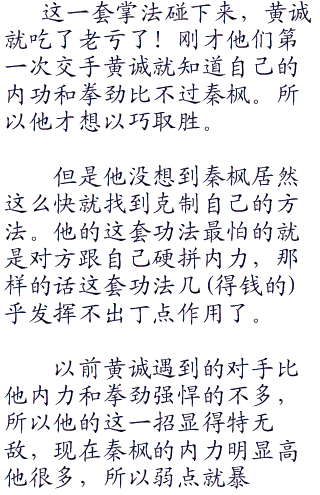 这一套掌法碰下来，黄诚
就吃了老亏了！刚才他们第
一次交手黄诚就知道自己的
内功和拳劲比不过秦枫。所
以他才想以巧取胜。
但是他没想到秦枫居然
这么快就找到克制自己的方
法。他的这套功法最怕的就
是对方跟自己硬拼内力，那
样的话这套功法几(得钱的)
乎发挥不出丁点作用了。
以前黄诚遇到的对手比
他内力和拳劲强悍的不多，
所以他的这一招显得特无
敌，现在秦枫的内力明显高
他很多，所以弱点就暴